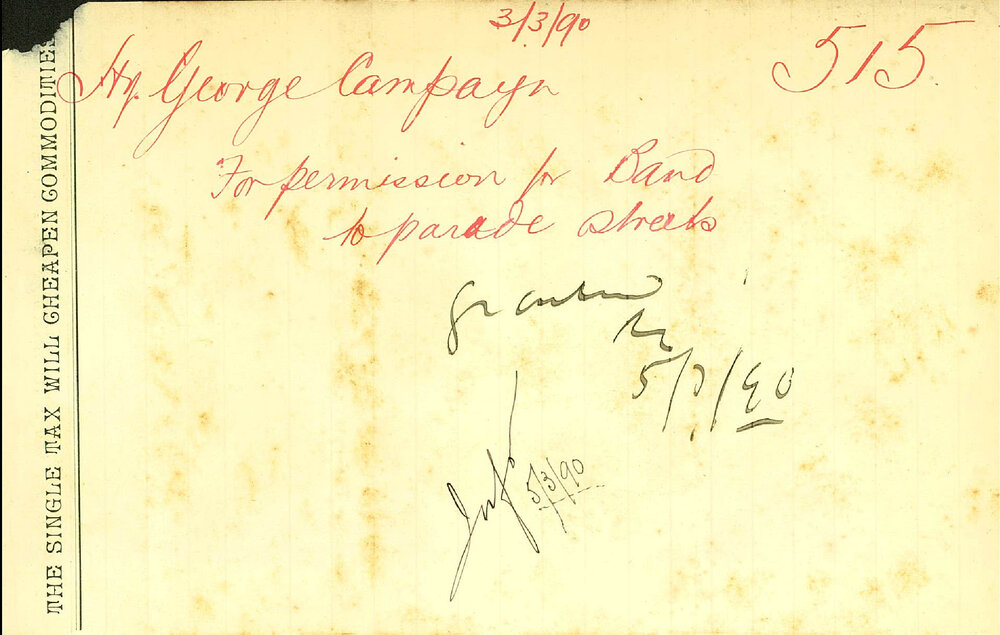 3/3/90
515
Hy. George Campayn
For permission for Band
to parade streets
Granted
5/3/90
5/3/90
THE SINGLE TAX WILL CHEAPEN COMMODITIES